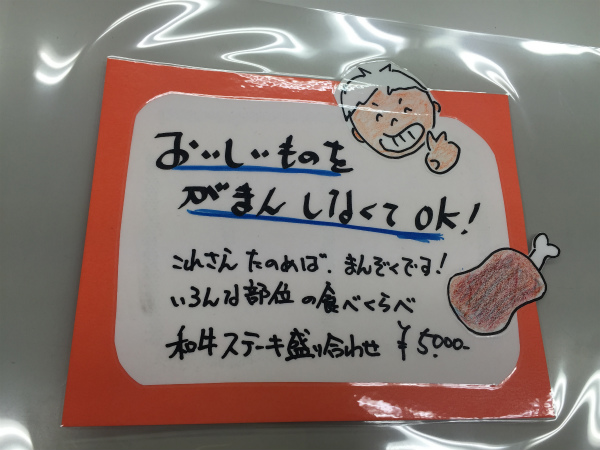 おいしいものを
がまんしなくてOK!
これさえたのめば、まんぞくです!
いろんな部位の食べくらべ
和牛ステーキ盛り合わせ ¥5000-